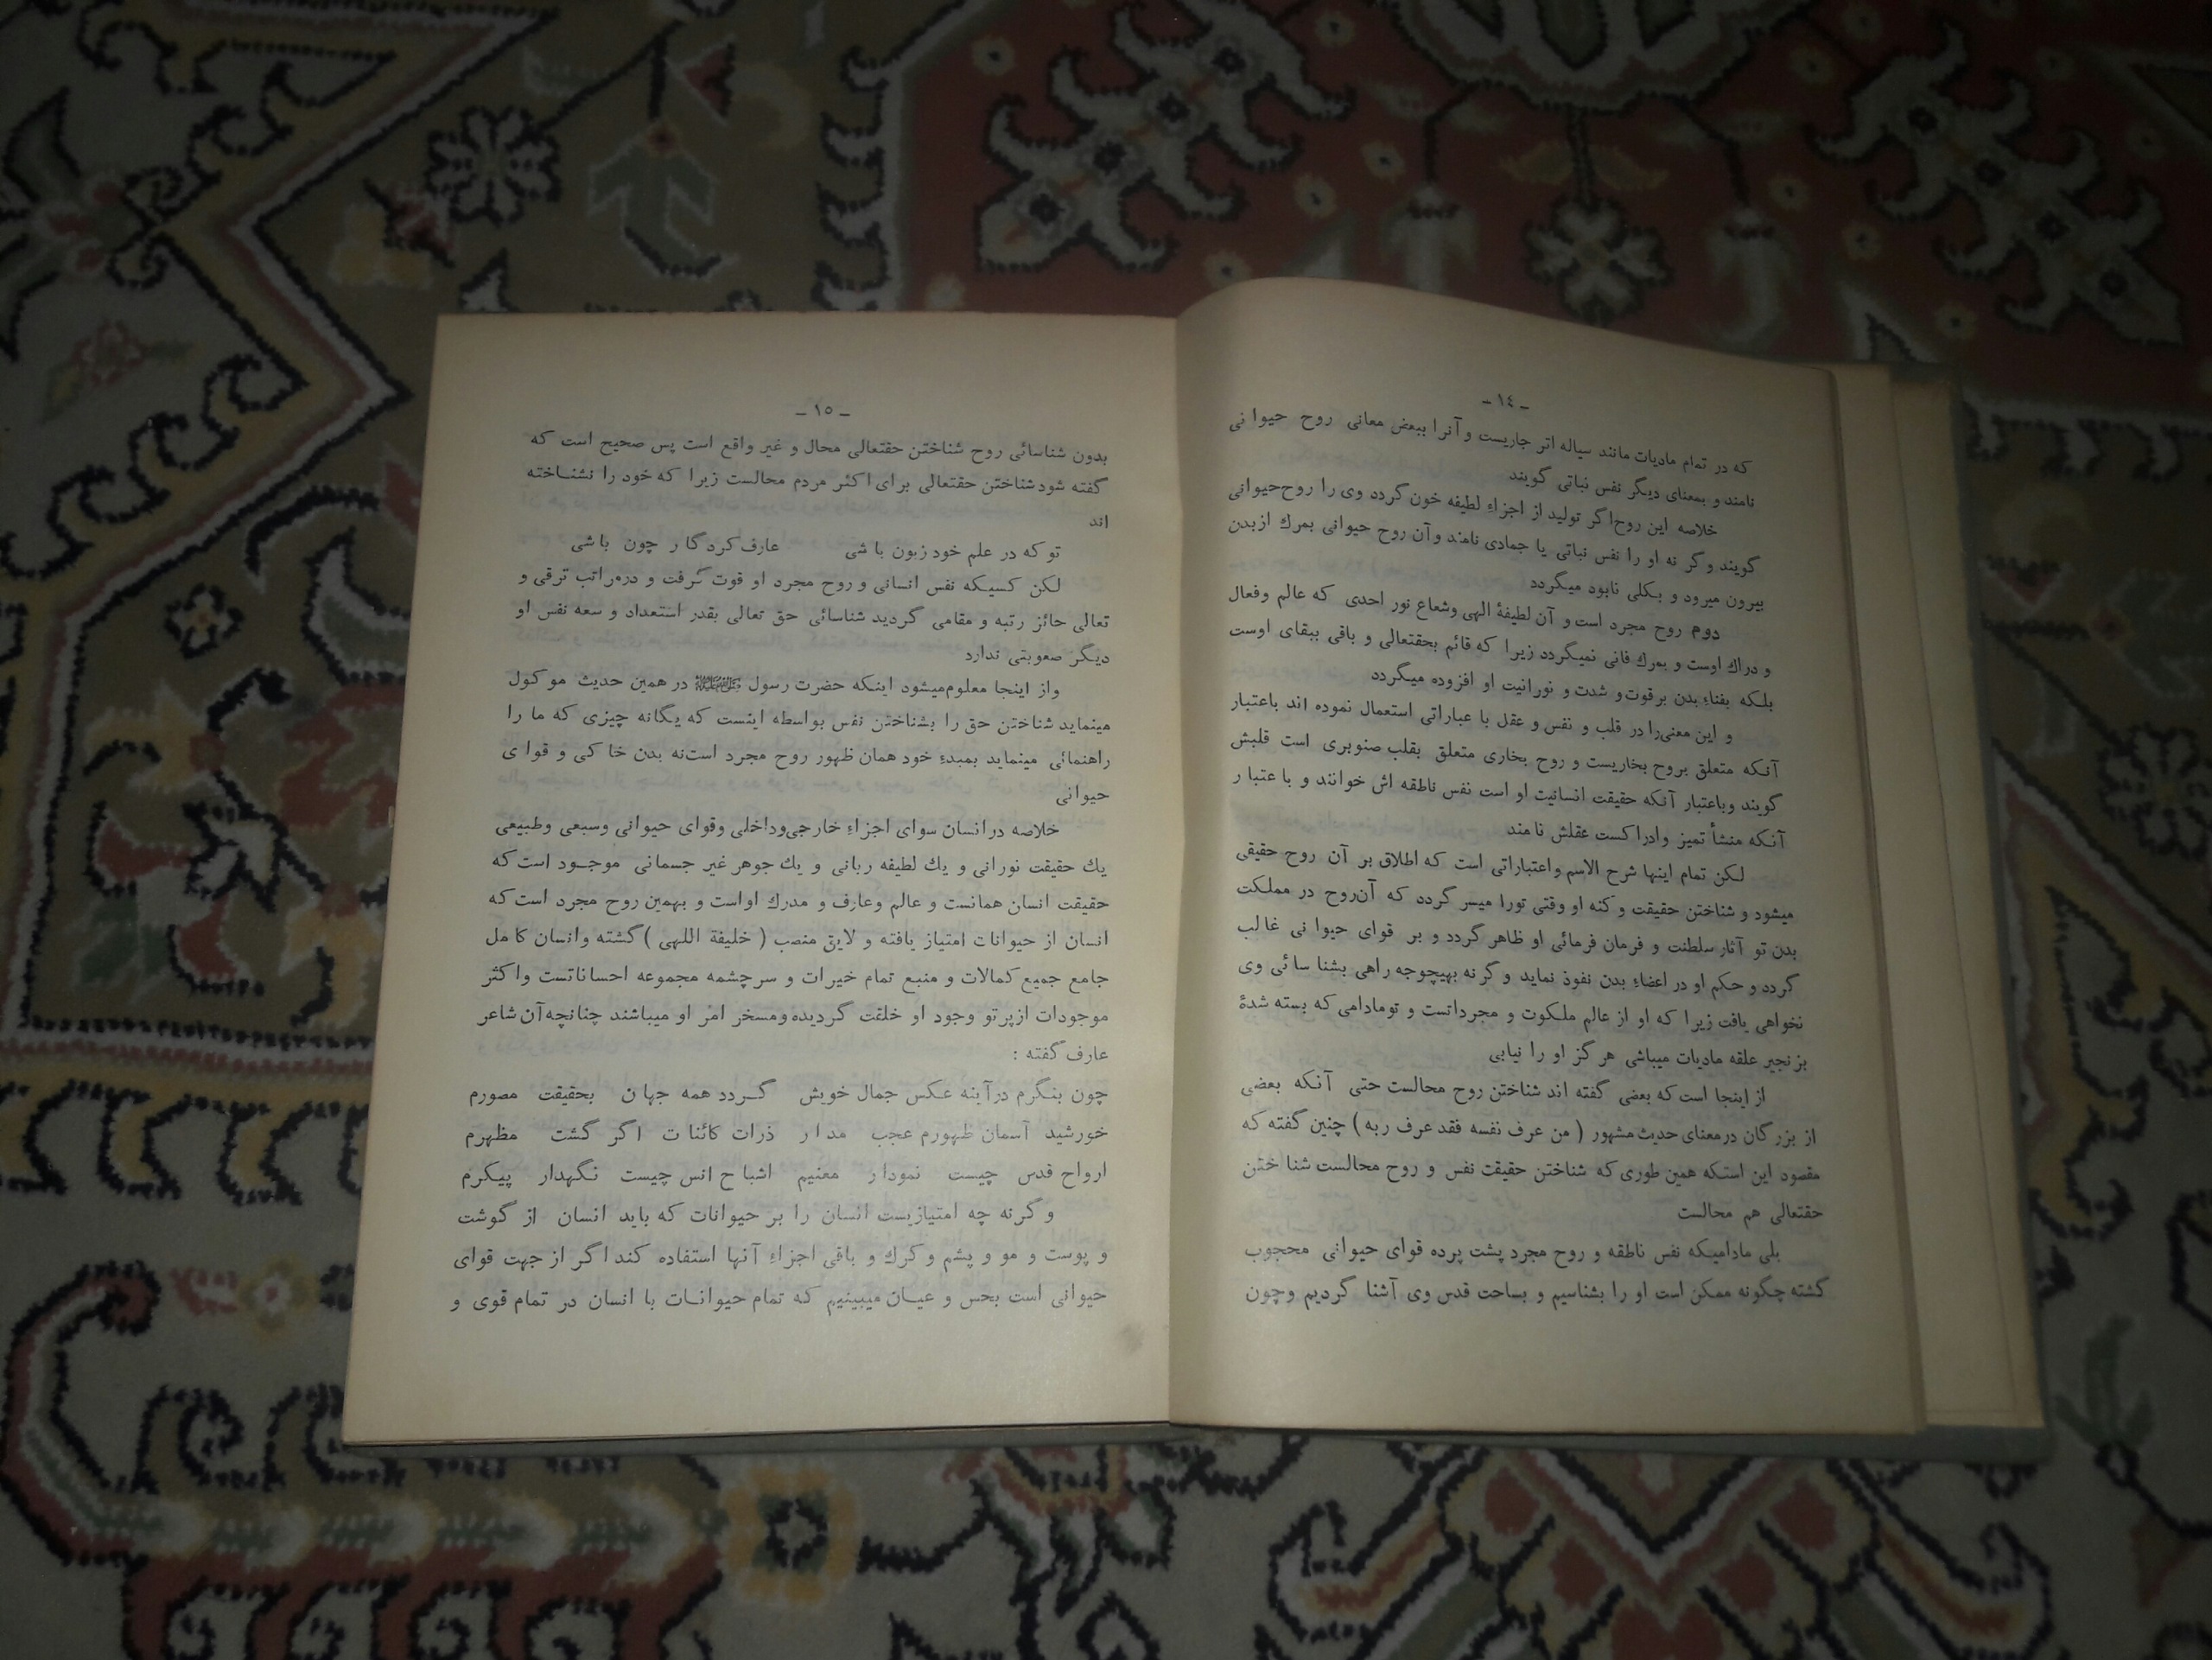 - ١٤ -
که در تمام مادیات مانند سیاله اتر جاریست و آنرا ببعض معانی روح حیوانی
نامند و بمعنای دیگر نفس نباتی گویند
خلاصه این روح اگر تولید از اجزاء لطیفه خون گردد وی را روح حیوانی
گویند و گر نه او را نفس نباتی یا جمادی نامند و آن روح حیوانی بمرك از بدن
بیرون میرود و بکلی نابود میگردد
دوم روح مجرد است و آن لطیفهٔ الهی و شعاع نور احدی که عالم و فعال
و دراك اوست و بمرك فانی نمیگردد زیرا که قائم بحقتعالی و باقی ببقای اوست
بلکه بفناء بدن بر قوت و شدت و نورانیت او افزوده میگردد
و این معنی را در قلب و نفس و عقل با عباراتی استعمال نموده اند باعتبار
آنکه متعلق بروح بخاریست و روح بخاری متعلق بقلب صنوبری است قلبش
گویند و باعتبار آنکه حقیقت انسانیت او است نفس ناطقه اش خوانند و با عتبار
آنکه منشأ تمیز وادراکست عقلش نامند
لکن تمام اینها شرح الاسم و اعتباراتی است که اطلاق بر آن روح حقیقی
میشود و شناختن حقیقت و کنه او وقتی تورا میسر گردد که آن روح در مملکت
بدن تو آثار سلطنت و فرمان فرمائی او ظاهر گردد و بر قوای حیوانی غالب
گردد و حکم او در اعضاء بدن نفوذ نماید و گرنه بهیچوجه راهی بشناسائی وی
نخواهی یافت زیرا که او از عالم ملکوت و مجرداتست و تومادامی که بسته شدهٔ
بزنجیر علقه مادیات میباشی هرگز او را نیابی
از اینجا است که بعضی گفته اند شناختن روح محالست حتی آنکه بعضی
از بزرگان در معنای حدیث مشهور (من عرف نفسه فقد عرف ربه) چنین گفته که
مقصود این استکه همین طوری که شناختن حقیقت نفس و روح محالست شناختن
حقتعالی هم محالست
بلی مادامیکه نفس ناطقه و روح مجرد پشت پرده قوای حیوانی محجوب
گشته چگونه ممکن است او را بشناسیم و بساحت قدس وی آشنا گردیم وچون
- ١٥ -
بدون شناسائی روح شناختن حقتعالی محال و غیر واقع است پس صحیح است که
گفته شود شناختن حقتعالی برای اکثر مردم محالست زیرا که خود را نشناخته
اند
تو که در علم خود زبون باشی عارف کردگار چون باشی
لکن کسیکه نفس انسانی و روح مجرد او قوت گرفت و درمراتب ترقی و
تعالی حائز رتبه و مقامی گردید شناسائی حق تعالی بقدر استعداد و سعه نفس او
دیگر صعوبتی ندارد
واز اینجا معلوم میشود اینکه حضرت رسول ﷺ در همین حدیث موکول
مینماید شناختن حق را بشناختن نفس بواسطه اینست که یگانه چیزی که ما را
راهنمائی مینماید بمبدء خود همان ظهور روح مجرد است نه بدن خاکی و قوای
حیوانی
خلاصه در انسان سوای اجزاء خارجی وداخلی وقوای حیوانی وسبعی وطبیعی
یك حقیقت نورانی و یك لطیفه ربانی و یك جوهر غیر جسمانی موجود است که
حقیقت انسان همانست و عالم و عارف و مدرك او است و بهمین روح مجرد است که
انسان از حیوانات امتیاز یافته و لایق منصب (خلیفة اللهی) گشته و انسان کامل
جامع جمیع کمالات و منبع تمام خیرات و سرچشمه مجموعه احساناتست و اکثر
موجودات ازپرتو وجود او خلقت گردیده و مسخر امر او میباشند چنانچه آن شاعر
عارف گفته :
چون بنگرم در آینه عکس جمال خویش گردد همه جهان بحقیقت مصورم
خورشید آسمان ظهورم عجب مدار ذرات کائنات اگر گشت مظهرم
ارواح قدس چیست نمودار معنیم اشباح انس چیست نگهدار پیکرم
و گرنه چه امتیازیست انسان را بر حیوانات که باید انسان از گوشت
و پوست و مو و پشم و کرك و باقی اجزاء آنها استفاده کند اگر از جهت قوای
حیوانی است بحس و عیان میبینیم که تمام حیوانات با انسان در تمام قوی و